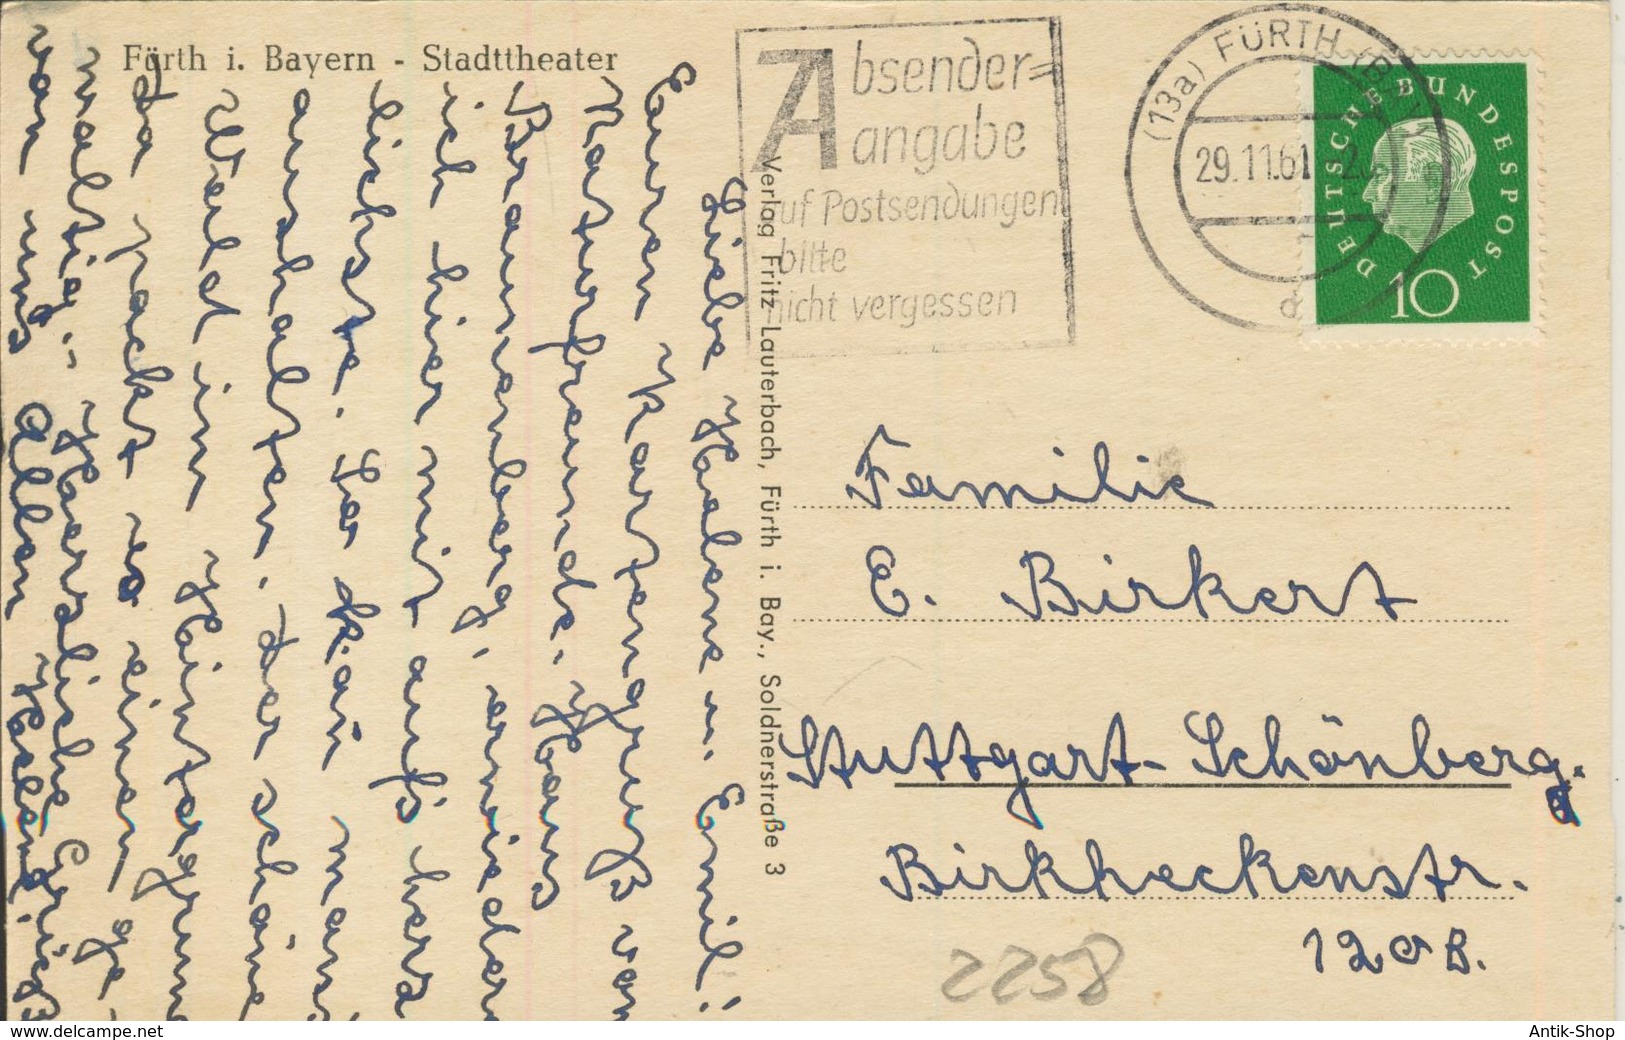 Fürth i. Bayern - Stadttheater
Absender=
angabe
auf Postsendungen
bitte
nicht vergessen
(13a) FÜRTH (BAY)
29.11.61
d
DEUTSCHE BUNDESPOST
10
Verlag Fritz Lauterbach, Fürth i. Bay., Soldnerstraße 3
Liebe Helene u. Emil!
Euren Kartengruß von
Naturfreunde. Haus
Braunenberg, erwieder
ich hier mit aufs herz
lichste. So kan man's
aushalten. Der schöne
Wald im Hintergrund
Da packt es einen ge-
waltig. Herzliche Grüße
von uns Allen Helene
Familie
E. Birkert
Stuttgart-Schönberg.
Birkheckenstr.
120 B.
2258
www.delcampe.net
Antik-Shop